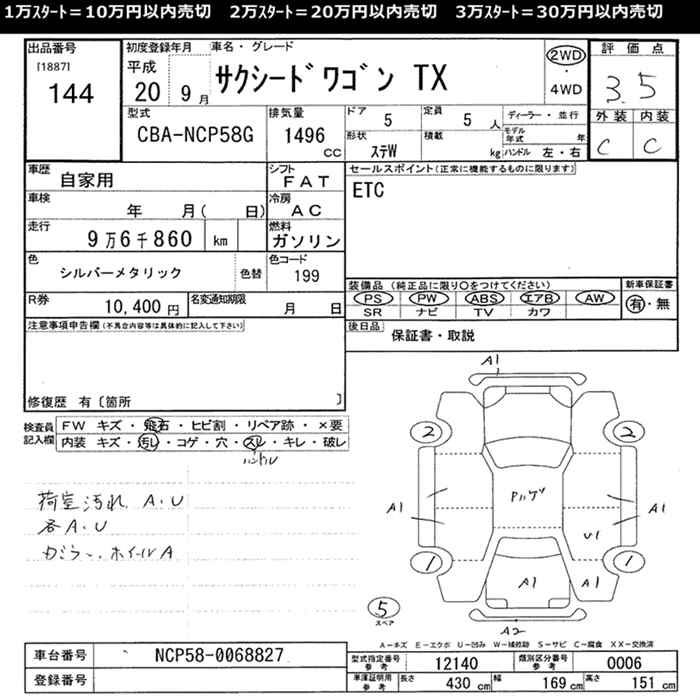 1万ｽﾀｰﾄ＝10万円以内売切　2万ｽﾀｰﾄ＝20万円以内売切　3万ｽﾀｰﾄ＝30万円以内売切
出品番号
[1887]
144
初度登録年月
平成
20 9月
車名・グレード
サクシードワゴン TX
2WD
・
4WD
評価点
3.5
外装 内装
C C
型式
CBA-NCP58G
排気量
1496
CC
ドア
5
定員
5 人
ディーラー・並行
形状
ステW
積載
kg
モデル年式 年
ハンドル 左・右
車歴
自家用
シフト
FAT
車検
年 月( 日)
冷房
AC
走行
9万6千860 km
燃料
ガソリン
色
シルバーメタリック
色替
色コード
199
R券
10,400 円
名変通知期限
月 日
セールスポイント(正常に機能するものに限ります)
ETC
装備品 (純正品に限り○をつけてください)
PS PW ABS エアB AW
SR ナビ TV カワ
新車保証書
有・無
後日品
保証書・取説
注意事項申告欄(不具合内容等は具体的に記入して下さい)
修復歴 有〔箇所 〕
検査員記入欄
FW キズ・飛石・ヒビ割・リペア跡・×要
内装 キズ・汚レ・コゲ・穴・スレ・キレ・破レ
ハンドル
荷室汚れ A・U
各A・U
カミラー、ホイールA
A1
2 2
A1
A1
U1
1 1
A1
A1
5
スペア
A2
A－キズ E－エクボ U－凹み W－補修跡 S－サビ C－腐食 XX－交換済
車台番号
NCP58-0068827
登録番号
型式指定番号 参考
12140
類別区分番号 参考
0006
車庫証明用 参考
長さ 430 cm
幅 169 cm
高さ 151 cm